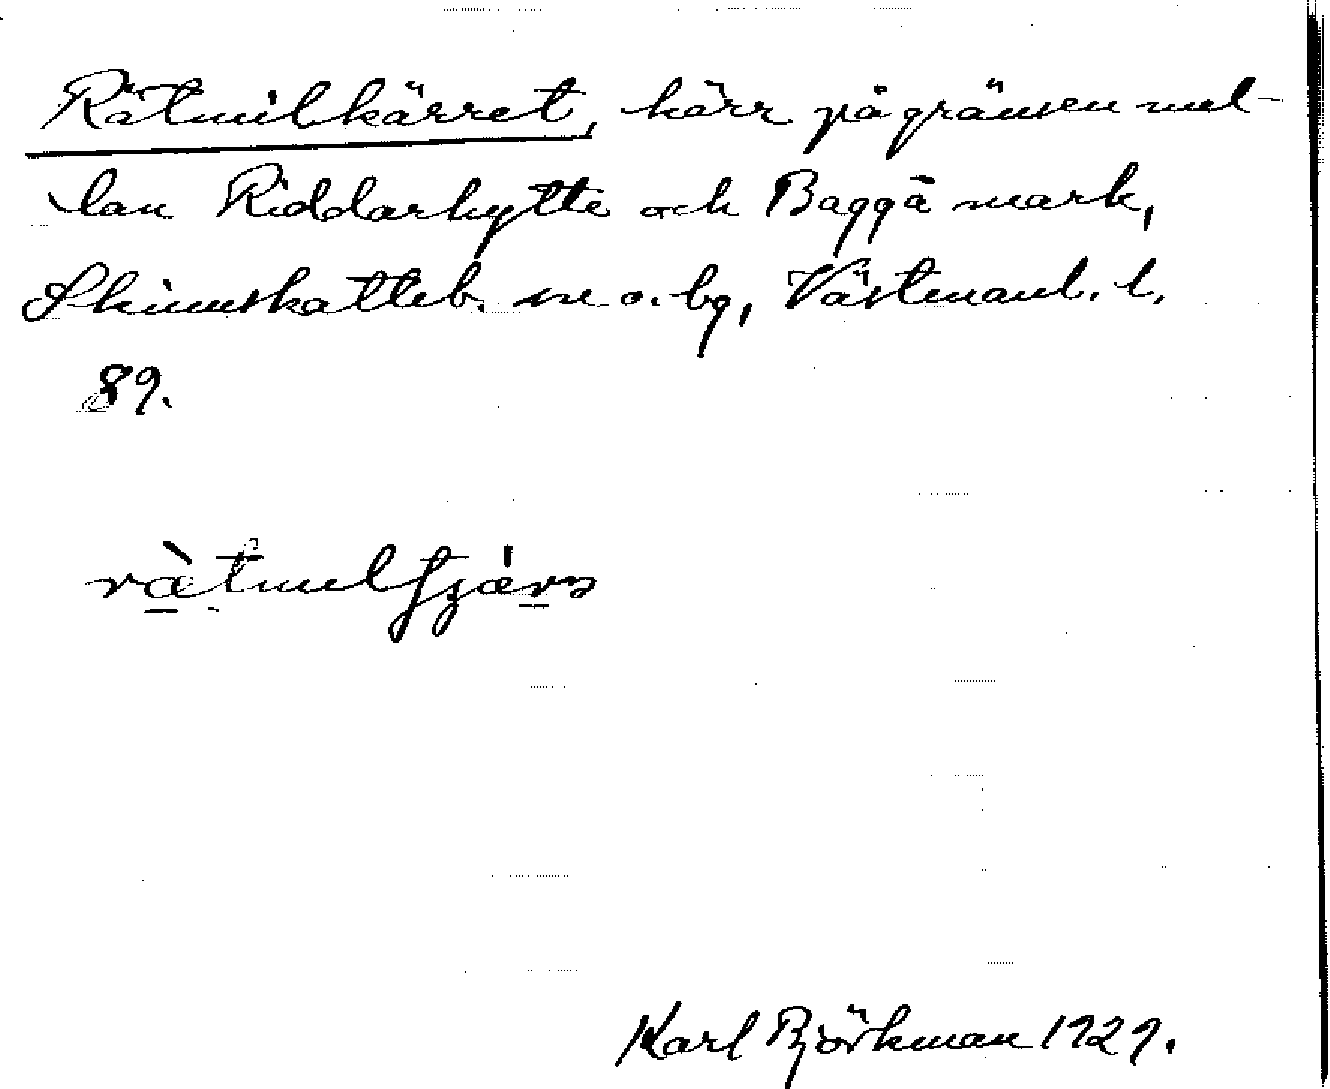 Rätmilkärret, kärr på gränsen mel-
lan Riddarhytte och Baggå mark,
Skinnskatteb. sn o. bg, Västmanl. l.
89.
Karl Björkman 1929.